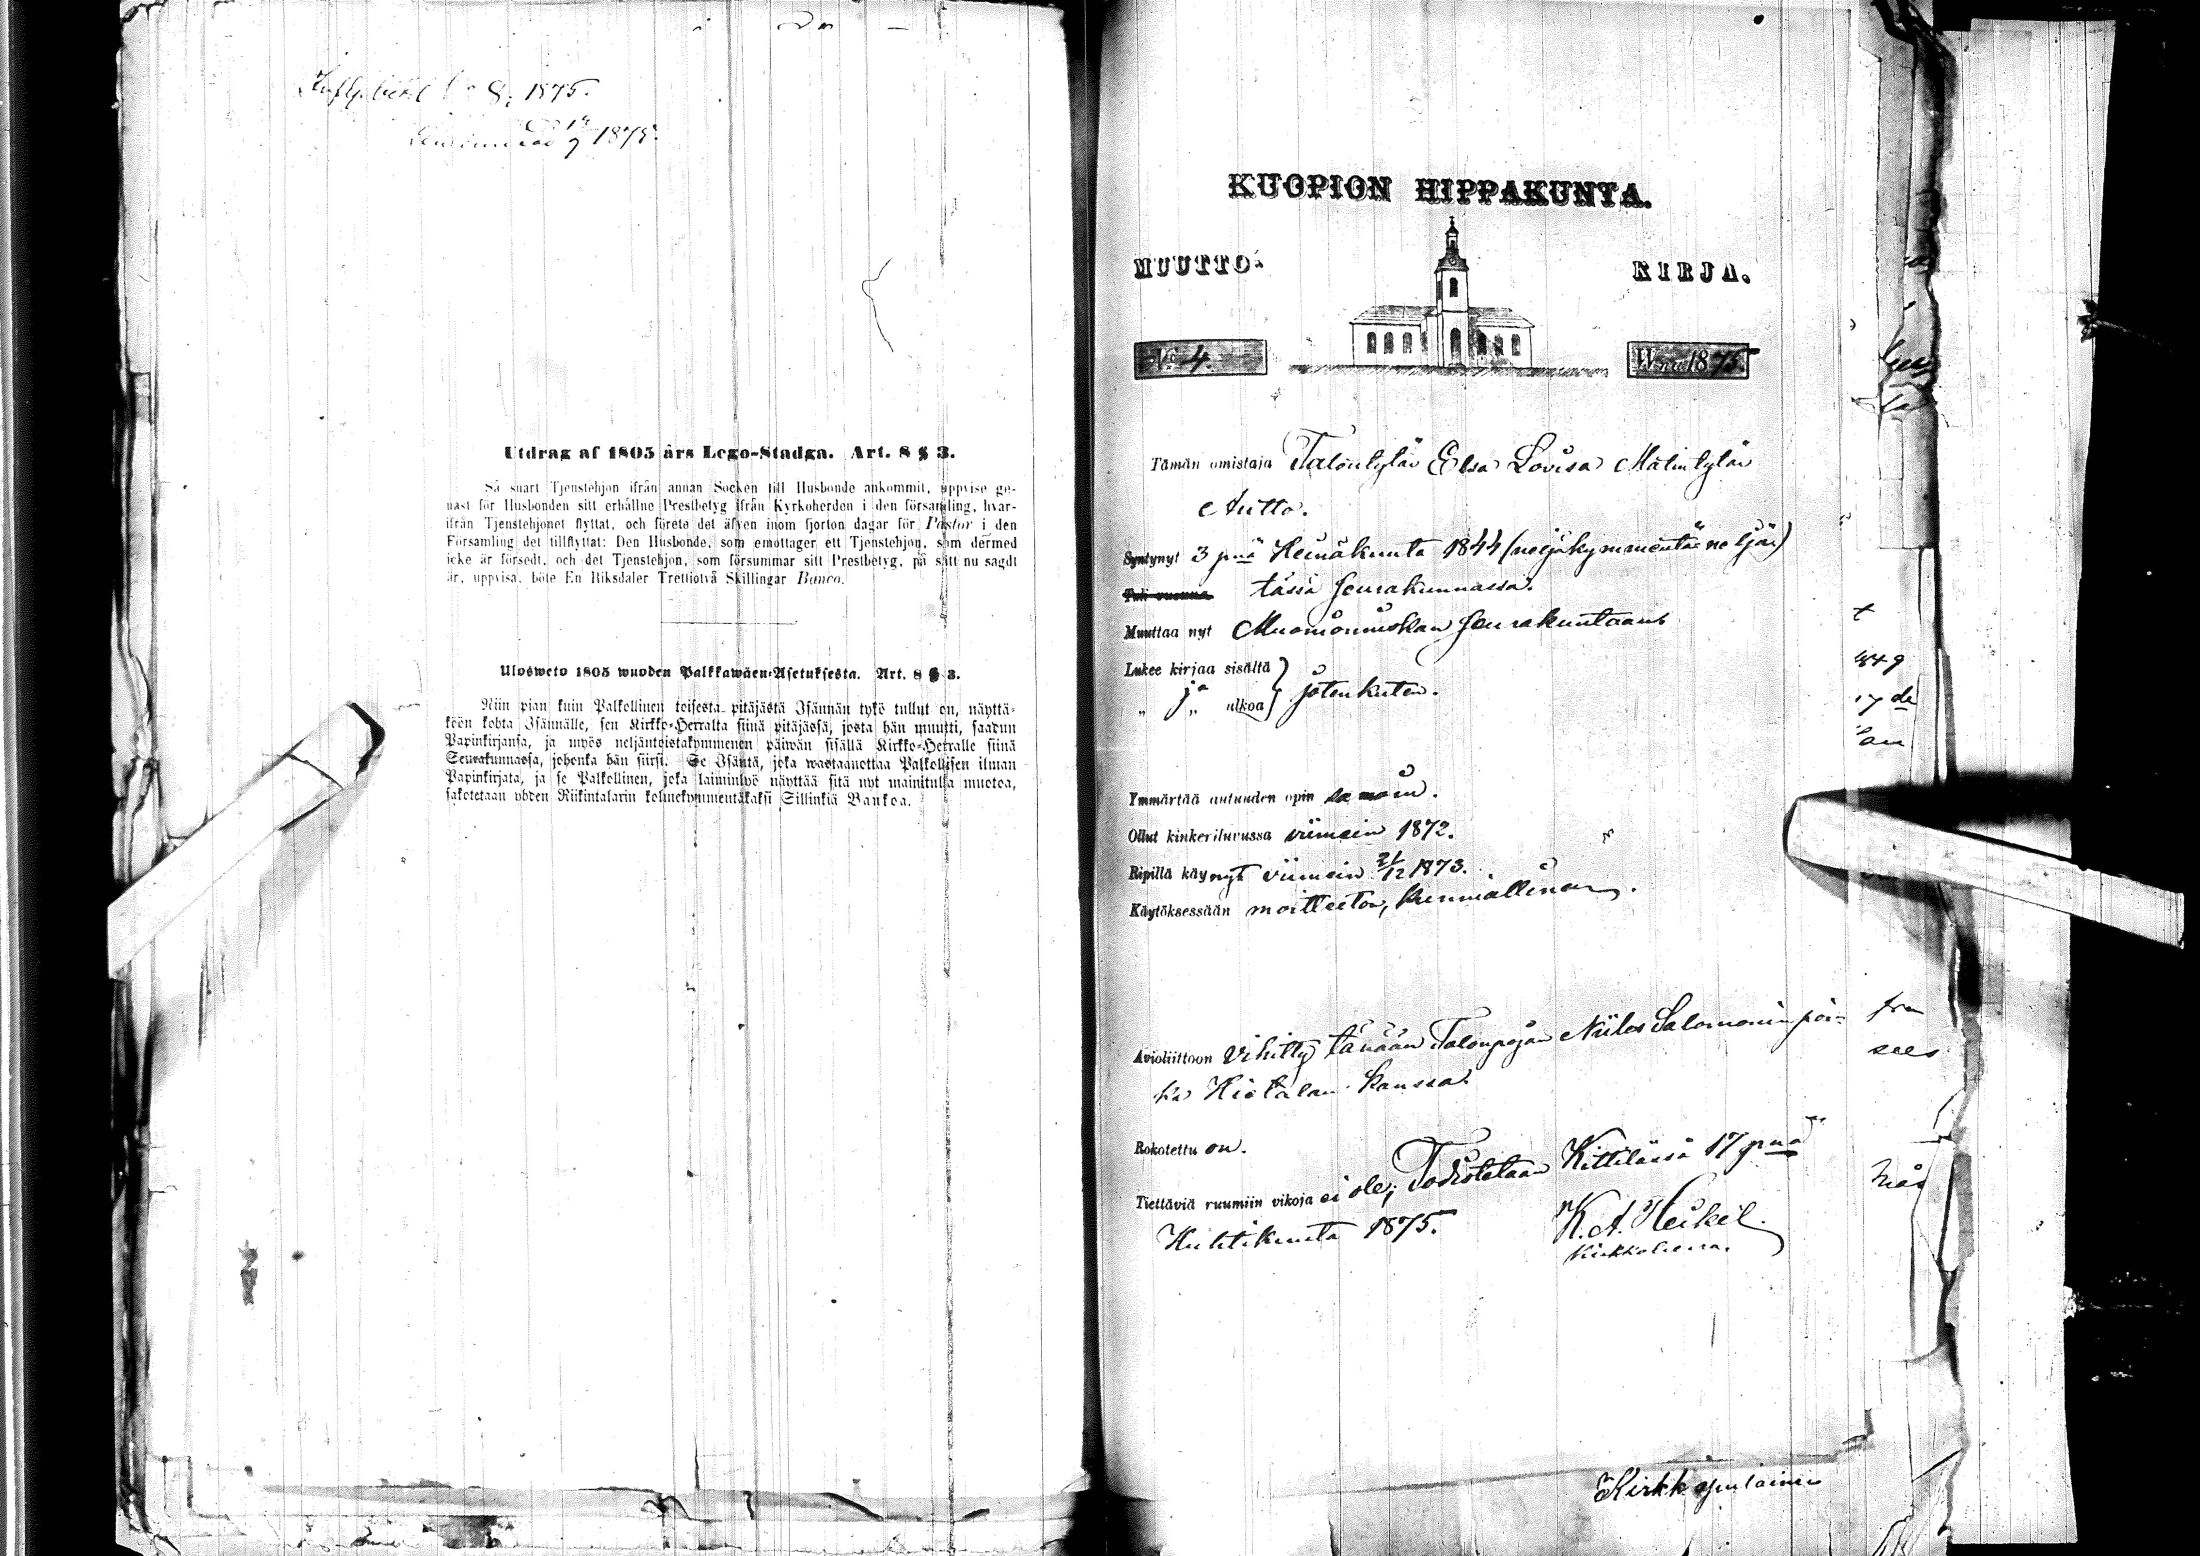 8, 1875.
1875.
Utdrag af 1805 års Lego-Stadga. Art. 8 § 3.
Så snart Tjenstehjon ifrån annan Socken till Husbonde ankommit, uppvise ge-
nast för Husbonden sitt erhållne Prestbetyg ifrån Kyrkoherden i den församling, hvar-
ifrån Tjenstehjonet flyttat, och förete det äfven inom fjorton dagar för Pastor i den
Församling det tillflyttat: Den Husbonde, som emottager ett Tjenstehjon, som dermed
icke är försedt, och det Tjenstehjon, som försummar sitt Prestbetyg, på sätt nu sagdt
är, uppvisa, böte En Riksdaler Trettiotvå Skillingar Banco.
Ulosweto 1805 wuoden Palkkawäen-Asetuksesta. Art. 8 § 3.
Niin pian kuin Palkollinen toisesta pitäjästä Isännän tykö tullut on, näyttä-
köön kohta Isännälle, sen Kirkko-Herralta siinä pitäjässä, josta hän muutti, saadun
Papinkirjansa, ja myös neljäntoistakymmenen päiwän sisällä Kirkko-Herralle siinä
Seurakunnassa, johonka hän siirsi. Se Isäntä, joka wastaanottaa Palkollisen ilman
Papinkirjata, ja se Palkollinen, joka laiminlyö näyttää sitä nyt mainitulla muotoa,
sakotetaan yhden Riikintalarin kolmekymmentäkaksi Sillinkiä Bankoa.
KUOPION HIPPAKUNTA.
MUUTTO- KIRJA.
N:o 4. W:na 1875.
Tämän omistaja Talontytär Elsa Lovisa Matintytär
Autto.
Syntynyt 3 p:nä Heinäkuuta 1844 (neljäkymmentä neljä)
Tuli vuonna tässä seurakunnassa.
Muuttaa nyt Muonionniskan seurakuntaan
Lukee kirjaa sisältä
„ ja „ ulkoa } jotenkuten.
Ymmärtää autuuden opin samoin.
Ollut kinkeriluvussa viimein 1872.
Ripillä käynyt viimein 21/12 1873.
Käytöksessään moitteeton, kunniallinen.
Avioliittoon vihitty tänään Talonpojan Niiles Salomonin poi-
ka Hietalan kanssa.
Rokotettu on.
Tiettäviä ruumiin vikoja ei ole; Todistetaan Kittilässä 17 p:nä
Huhtikuuta 1875. K. A. Heikel.
Kirkkoherra.
849
17 de